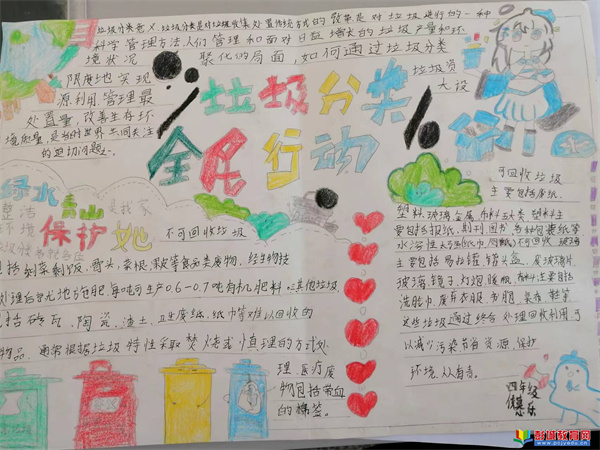 垃圾分类意义:垃圾分类是对垃圾收集处置传统方式的改革是对垃圾进行的一种
科学管理方法人们管理和面对日益增长的垃圾产量和环
境状况 聚化的局面,如何通过垃圾分类
限度地实现 垃圾资
源利用,管理最 大设
处置量,改善生存环
境质量,是当时世界共同关注
的迫切问题之一。
垃圾分类
全民行动
绿水青山
整洁 是我家
环境 保护她
不可回收垃圾
包括剩菜剩饭,骨头,菜根,果皮等食品类废物,经生物技
处理台旱尤地施肥,每吨可产生0.6-0.7吨有机肥料。其他垃圾
包括砖瓦,陶瓷,渣土,卫生废纸,纸巾等难以回收的
物品,通常根据垃圾特性采取焚烧或填埋的方式处
理,医疗废
物包括带血
的棉签。
可回收垃圾
主要包括废纸,
塑料,玻璃,金属,布料五大类
要包括报纸,期刊,图书,各种包装纸等
水溶性太强纸巾,厕纸不可回收,玻璃
主要包括易拉罐,罐头盒,废玻璃片,
玻璃,镜子,灯炮,暖瓶,布料主要包括
洗脸巾,废弃衣服,书胞,桌布,鞋等
这些垃圾通过综合处理回收利用可
以减少污染节省资源,保护
环境,从有害。
四年级
彭城教育网
www.pcjyedu.cn